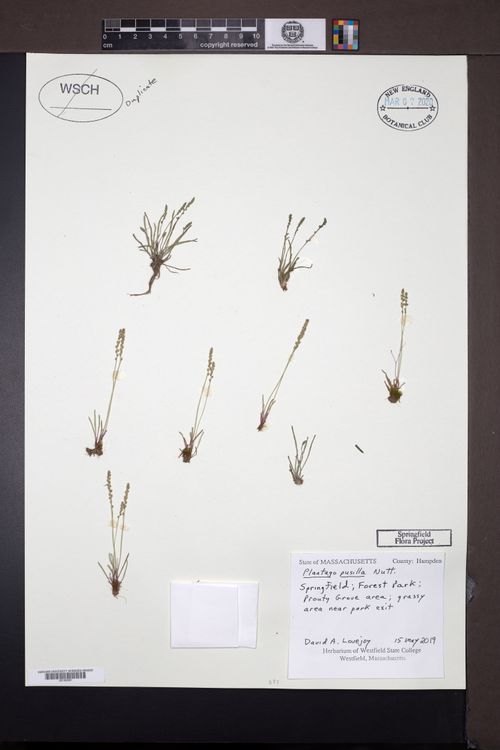 0 1 2 3 4 5 6 7 8 9 10
cm copyright reserved
WSCH
Duplicate
NEW ENGLAND
MAR 07 2020
BOTANICAL CLUB
Springfield
Flora Project
State of MASSACHUSETTS County: Hampden
Plantago pusilla Nutt.
Springfield; Forest Park;
Prouty Grove area; grassy
area near park exit
David A. Lovejoy 15 May 2019
Herbarium of Westfield State College
Westfield, Massachusetts